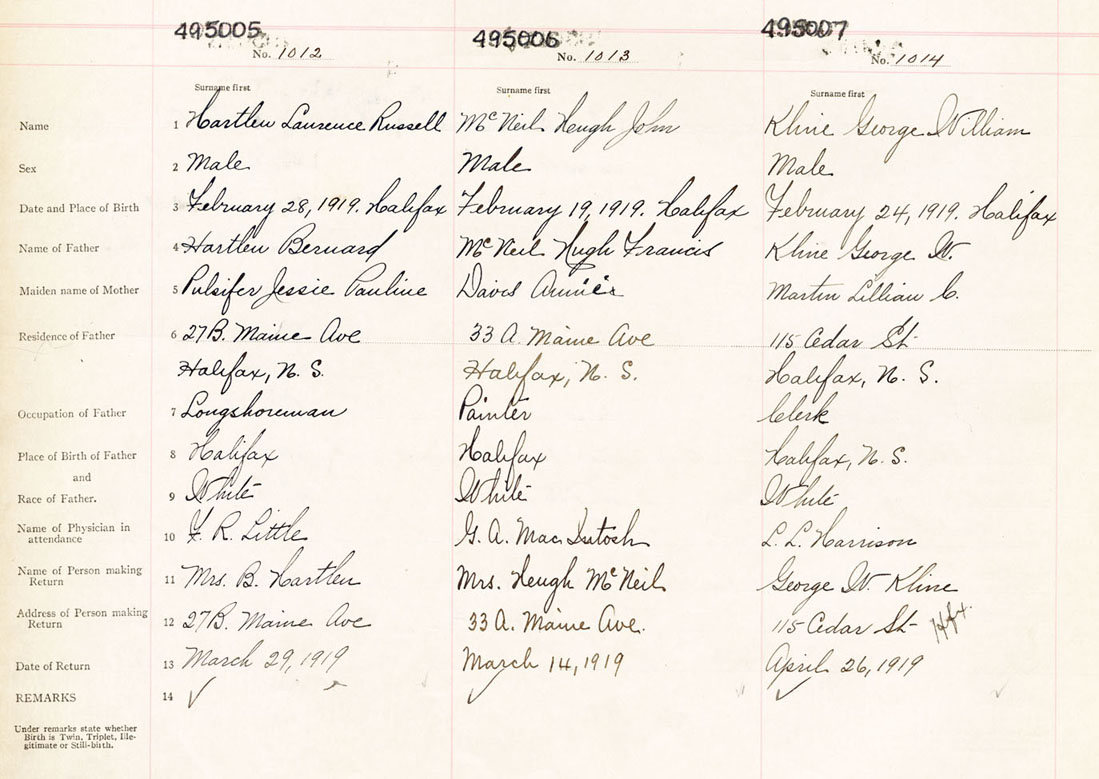 495005 495006 495007
No. 1012 No. 1013 No. 1014
Surname first Surname first Surname first
Name 1 Hartlen Laurence Russell McNeil Heugh John Kline George William
Sex 2 Male Male Male
Date and Place of Birth 3 February 28, 1919. Halifax February 19, 1919. Halifax February 24, 1919. Halifax
Name of Father 4 Hartlen Bernard McNeil Hugh Francis Kline George W.
Maiden name of Mother 5 Pulsifer Jessie Pauline Davis Annie Martin Lillian C.
Residence of Father 6 27B. Maine Ave 33 A. Maine Ave 115 Cedar St
Halifax, N. S. Halifax, N. S. Halifax, N. S.
Occupation of Father 7 Longshoreman Painter Clerk
Place of Birth of Father 8 Halifax Halifax Halifax, N. S.
and
Race of Father. 9 White White White
Name of Physician in
attendance 10 F. R. Little G. A. MacIntosh L. L. Harrison
Name of Person making
Return 11 Mrs. B. Hartlen Mrs. Heugh McNeil George W. Kline
Address of Person making
Return 12 27B. Maine Ave 33 A. Maine Ave. 115 Cedar St Hfx.
Date of Return 13 March 29, 1919 March 14, 1919 April 26, 1919
REMARKS 14 ✓ ✓ ✓
Under remarks state whether
Birth is Twin, Triplet, Ille-
gitimate or Still-birth.